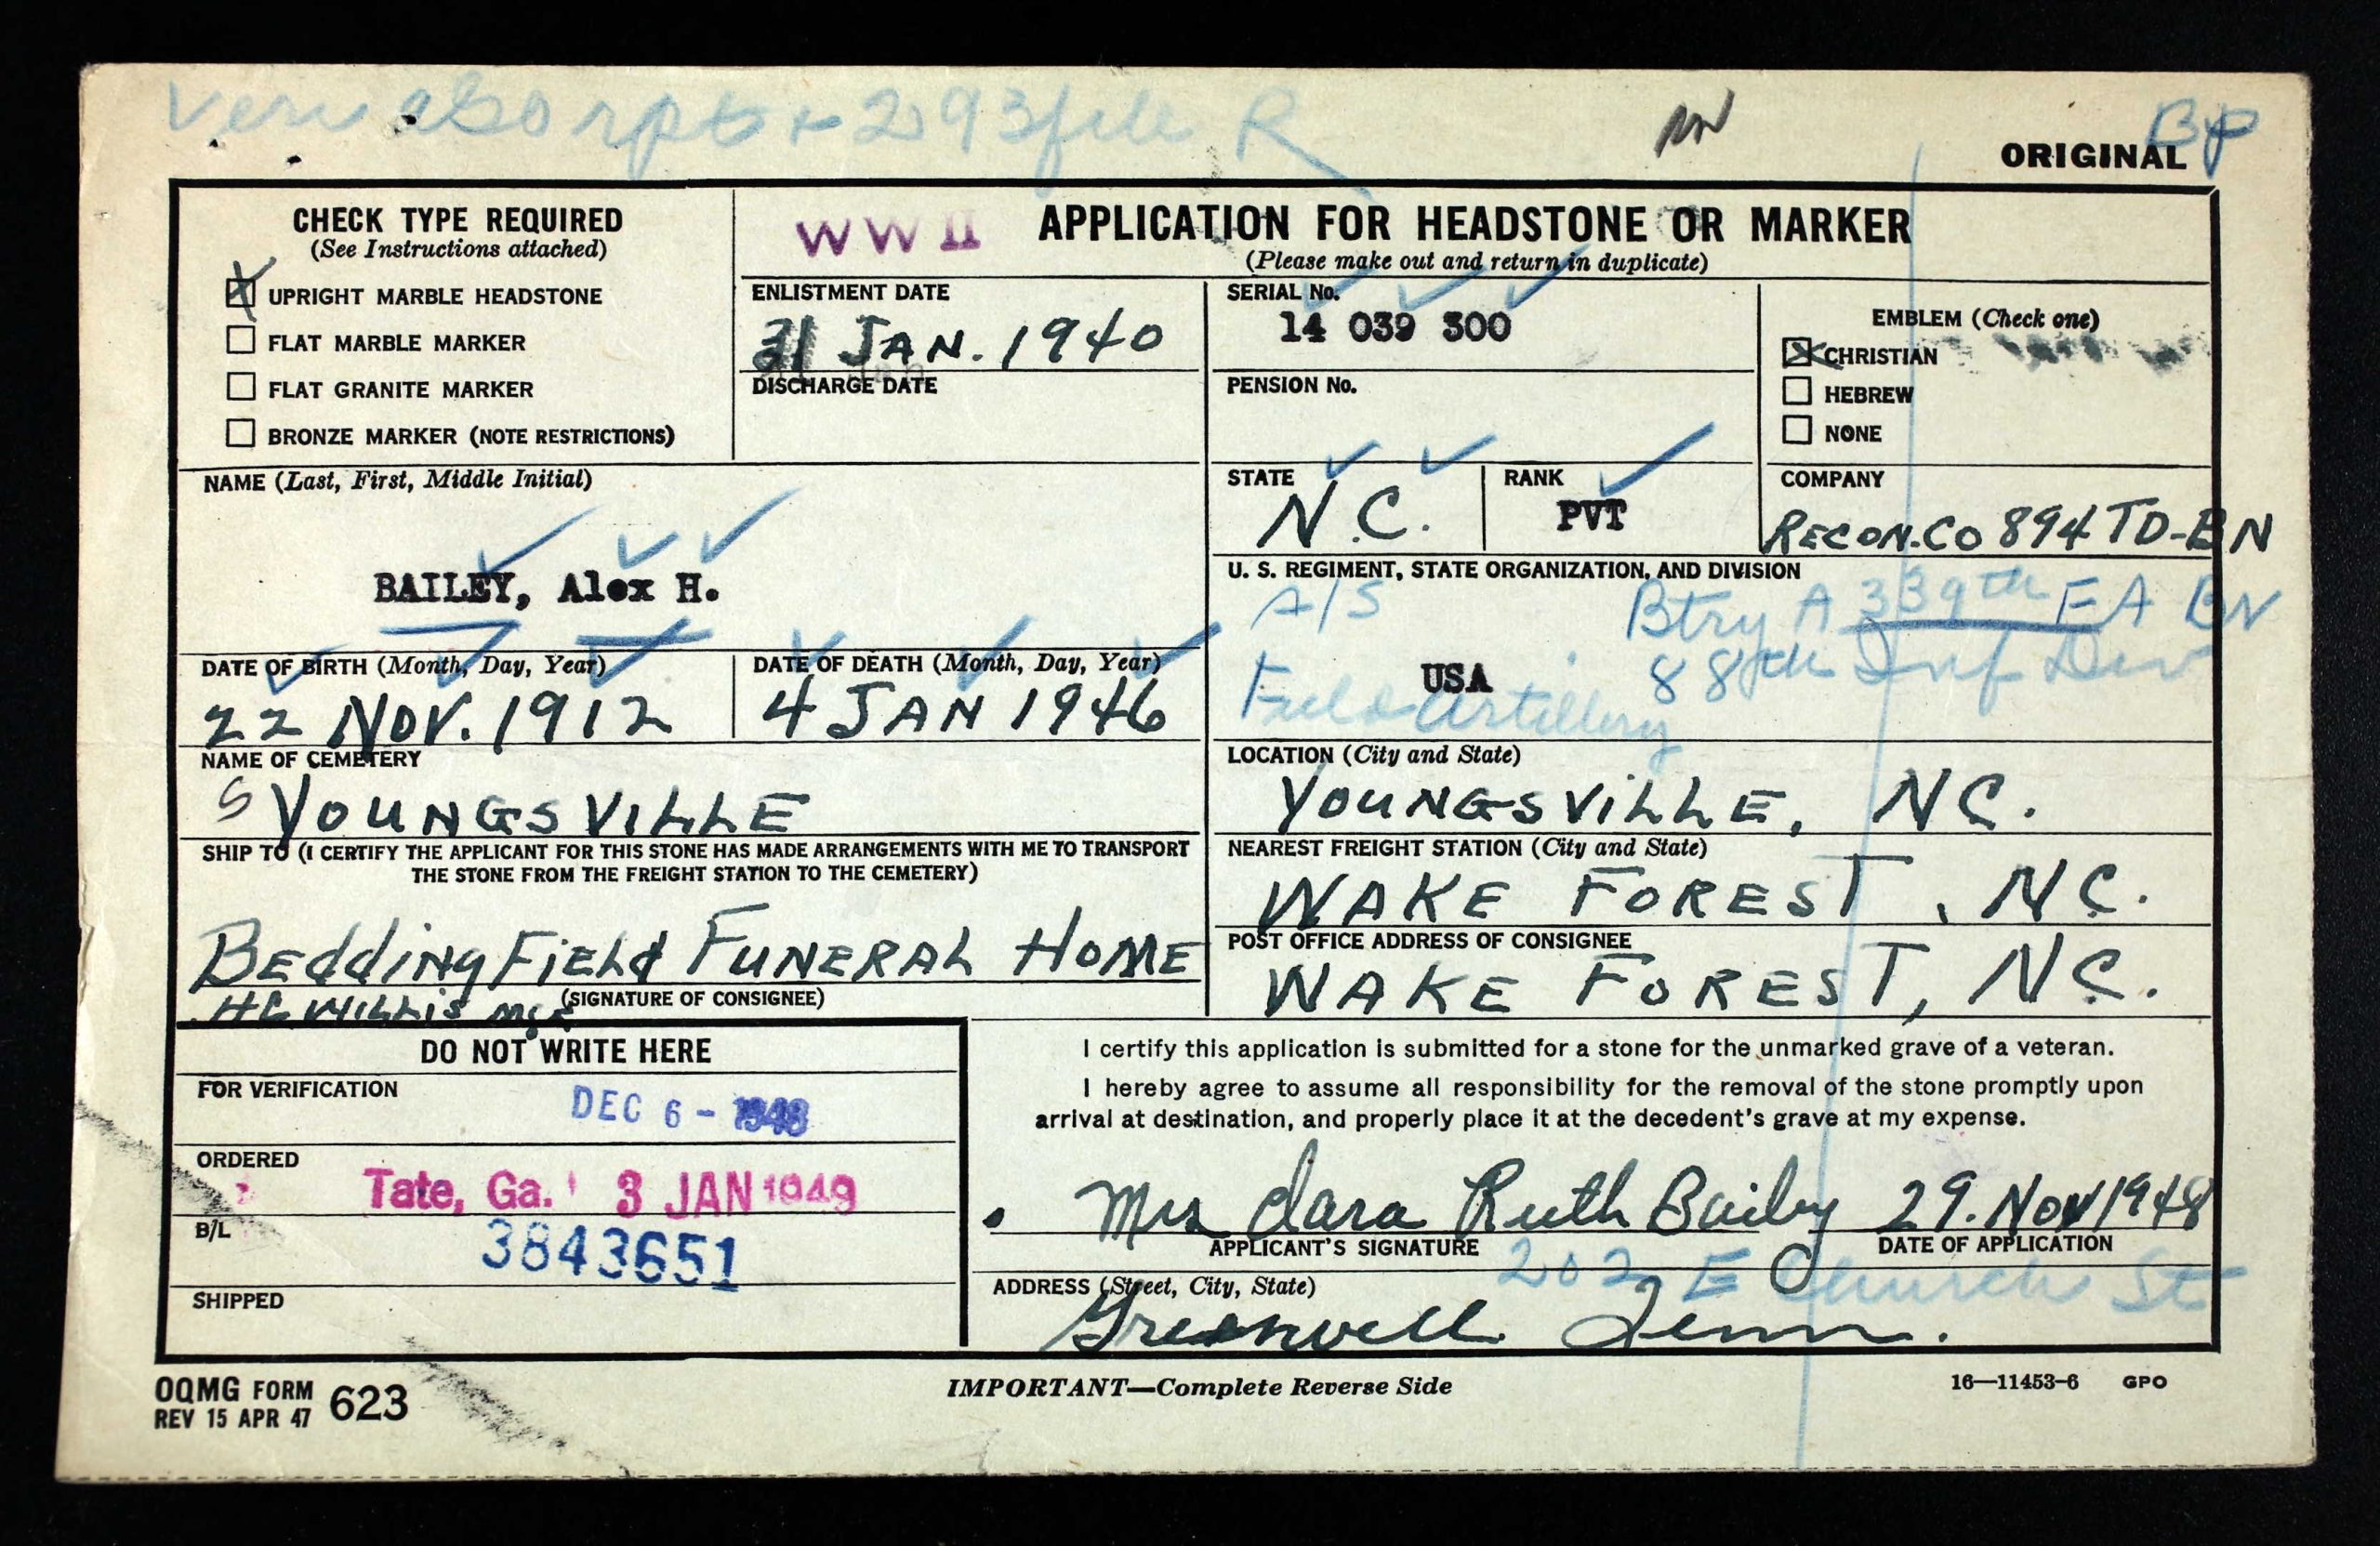 Veri also rpt + 293 file R
BP
ORIGINAL
CHECK TYPE REQUIRED
(See Instructions attached)
X UPRIGHT MARBLE HEADSTONE
FLAT MARBLE MARKER
FLAT GRANITE MARKER
BRONZE MARKER (NOTE RESTRICTIONS)
WW II
APPLICATION FOR HEADSTONE OR MARKER
(Please make out and return in duplicate)
ENLISTMENT DATE
31 JAN. 1940
DISCHARGE DATE
SERIAL No.
14 039 300
PENSION No.
EMBLEM (Check one)
X CHRISTIAN
HEBREW
NONE
NAME (Last, First, Middle Initial)
BAILEY, Alex H.
STATE
N.C.
RANK
PVT
COMPANY
RECON.CO 894 TD-BN
U. S. REGIMENT, STATE ORGANIZATION, AND DIVISION
A/S Btry A 339th FA BN
USA 88th Inf Div
Field Artillery
DATE OF BIRTH (Month, Day, Year)
22 NOV. 1912
DATE OF DEATH (Month, Day, Year)
4 JAN 1946
NAME OF CEMETERY
S YOUNGSVILLE
LOCATION (City and State)
YOUNGSVILLE, NC.
SHIP TO (I CERTIFY THE APPLICANT FOR THIS STONE HAS MADE ARRANGEMENTS WITH ME TO TRANSPORT
THE STONE FROM THE FREIGHT STATION TO THE CEMETERY)
BEddingFiELd FUNERAL HOME
HC WILLIS MGR
(SIGNATURE OF CONSIGNEE)
NEAREST FREIGHT STATION (City and State)
WAKE FOREST, NC.
POST OFFICE ADDRESS OF CONSIGNEE
WAKE FOREST, NC.
DO NOT WRITE HERE
FOR VERIFICATION
DEC 6 - 1948
ORDERED
Tate, Ga. 3 JAN 1949
B/L
3843651
SHIPPED
I certify this application is submitted for a stone for the unmarked grave of a veteran.
I hereby agree to assume all responsibility for the removal of the stone promptly upon
arrival at destination, and properly place it at the decedent's grave at my expense.
Mrs Clara Ruth Bailey 29. Nov 1948
APPLICANT'S SIGNATURE
DATE OF APPLICATION
202 E Church St
ADDRESS (Street, City, State)
Tenn.
OQMG FORM 623
REV 15 APR 47
IMPORTANT—Complete Reverse Side
16—11453-6 GPO